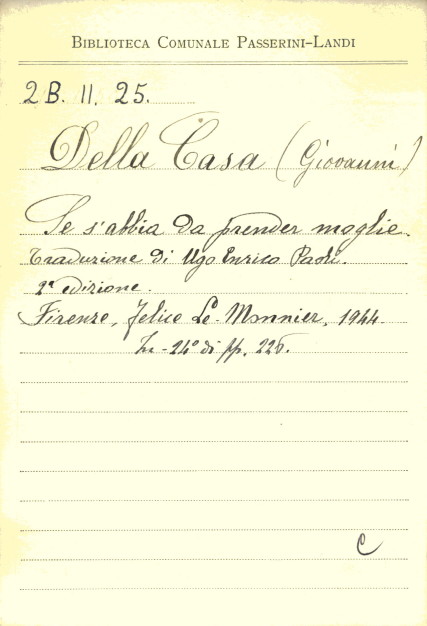 BIBLIOTECA COMUNALE PASSERINI-LANDI
2B. II. 25.
Della Casa (Giovanni)
Se s'abbia da prender moglie.
Traduzione di Ugo Enrico Paoli.
2ª edizione.
Firenze, Felice Le-Monnier, 1944.
In-24° di pp. 226.
C